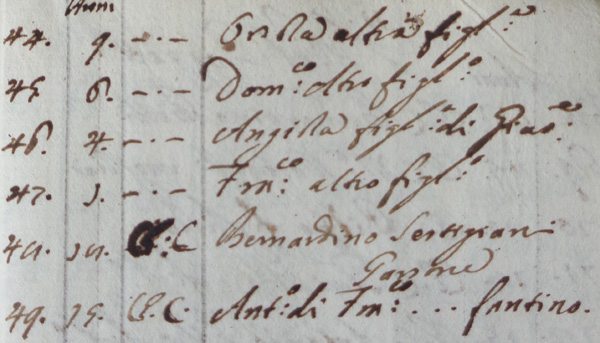 Ann
44. 9. -·- Orsola altra figl:ª
45 6. -·- Dom:co altro figl:º
46. 4. -·- Angiola figl:ª di Giac:
47. 1. -·- Fran:co altro figl:º
48. 18. C C Bernardino
Garzone
49. 15. C. C. Ant:º di Fran:co ... fantino.